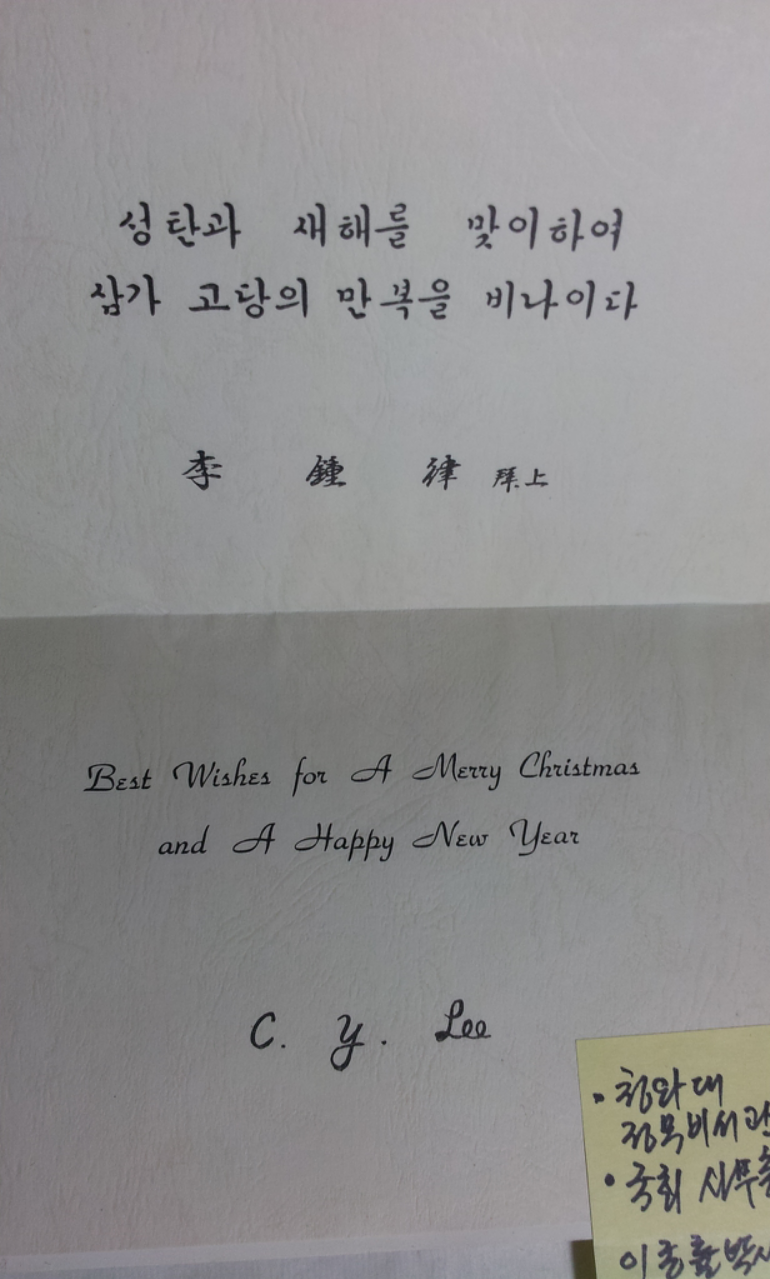 성탄과 새해를 맞이하여
삼가 고당의 만복을 비나이다
李 鍾 律 拜上
Best Wishes for A Merry Christmas
and A Happy New Year
C. Y. Lee
• 청와대
정무비서관
• 국회 사무총
이종률박사